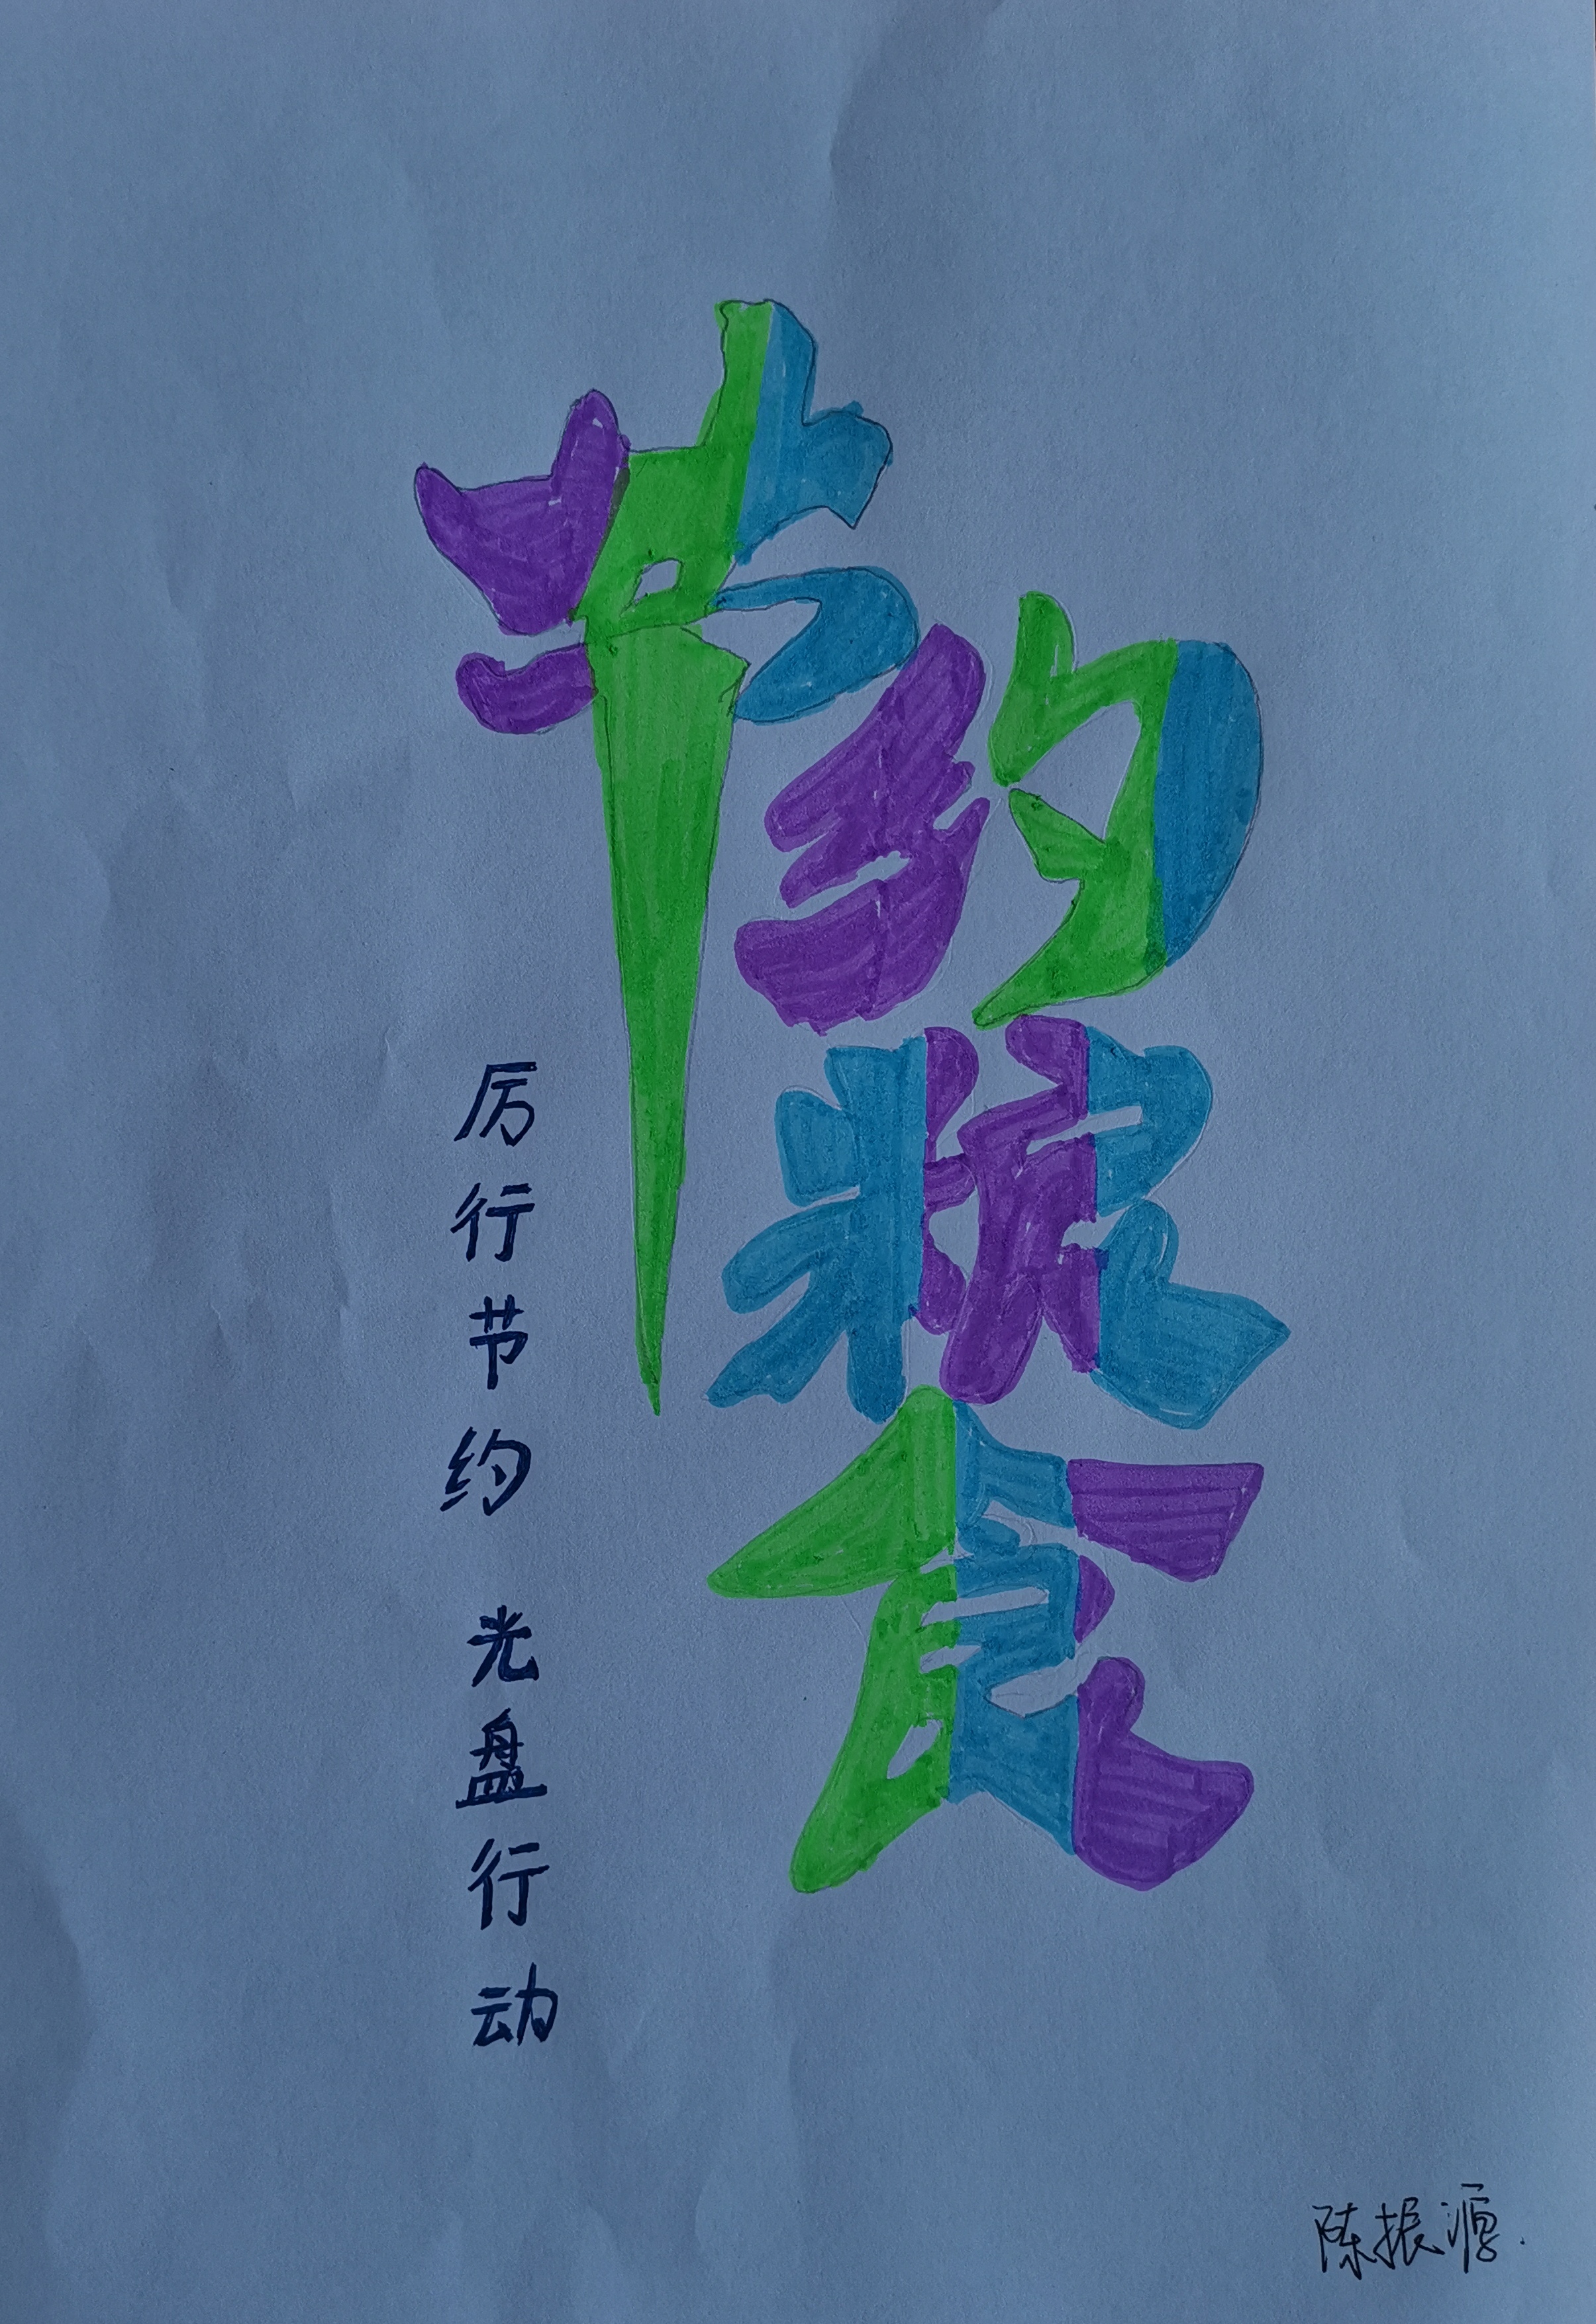 节约粮食
厉行节约 光盘行动
陈振源.